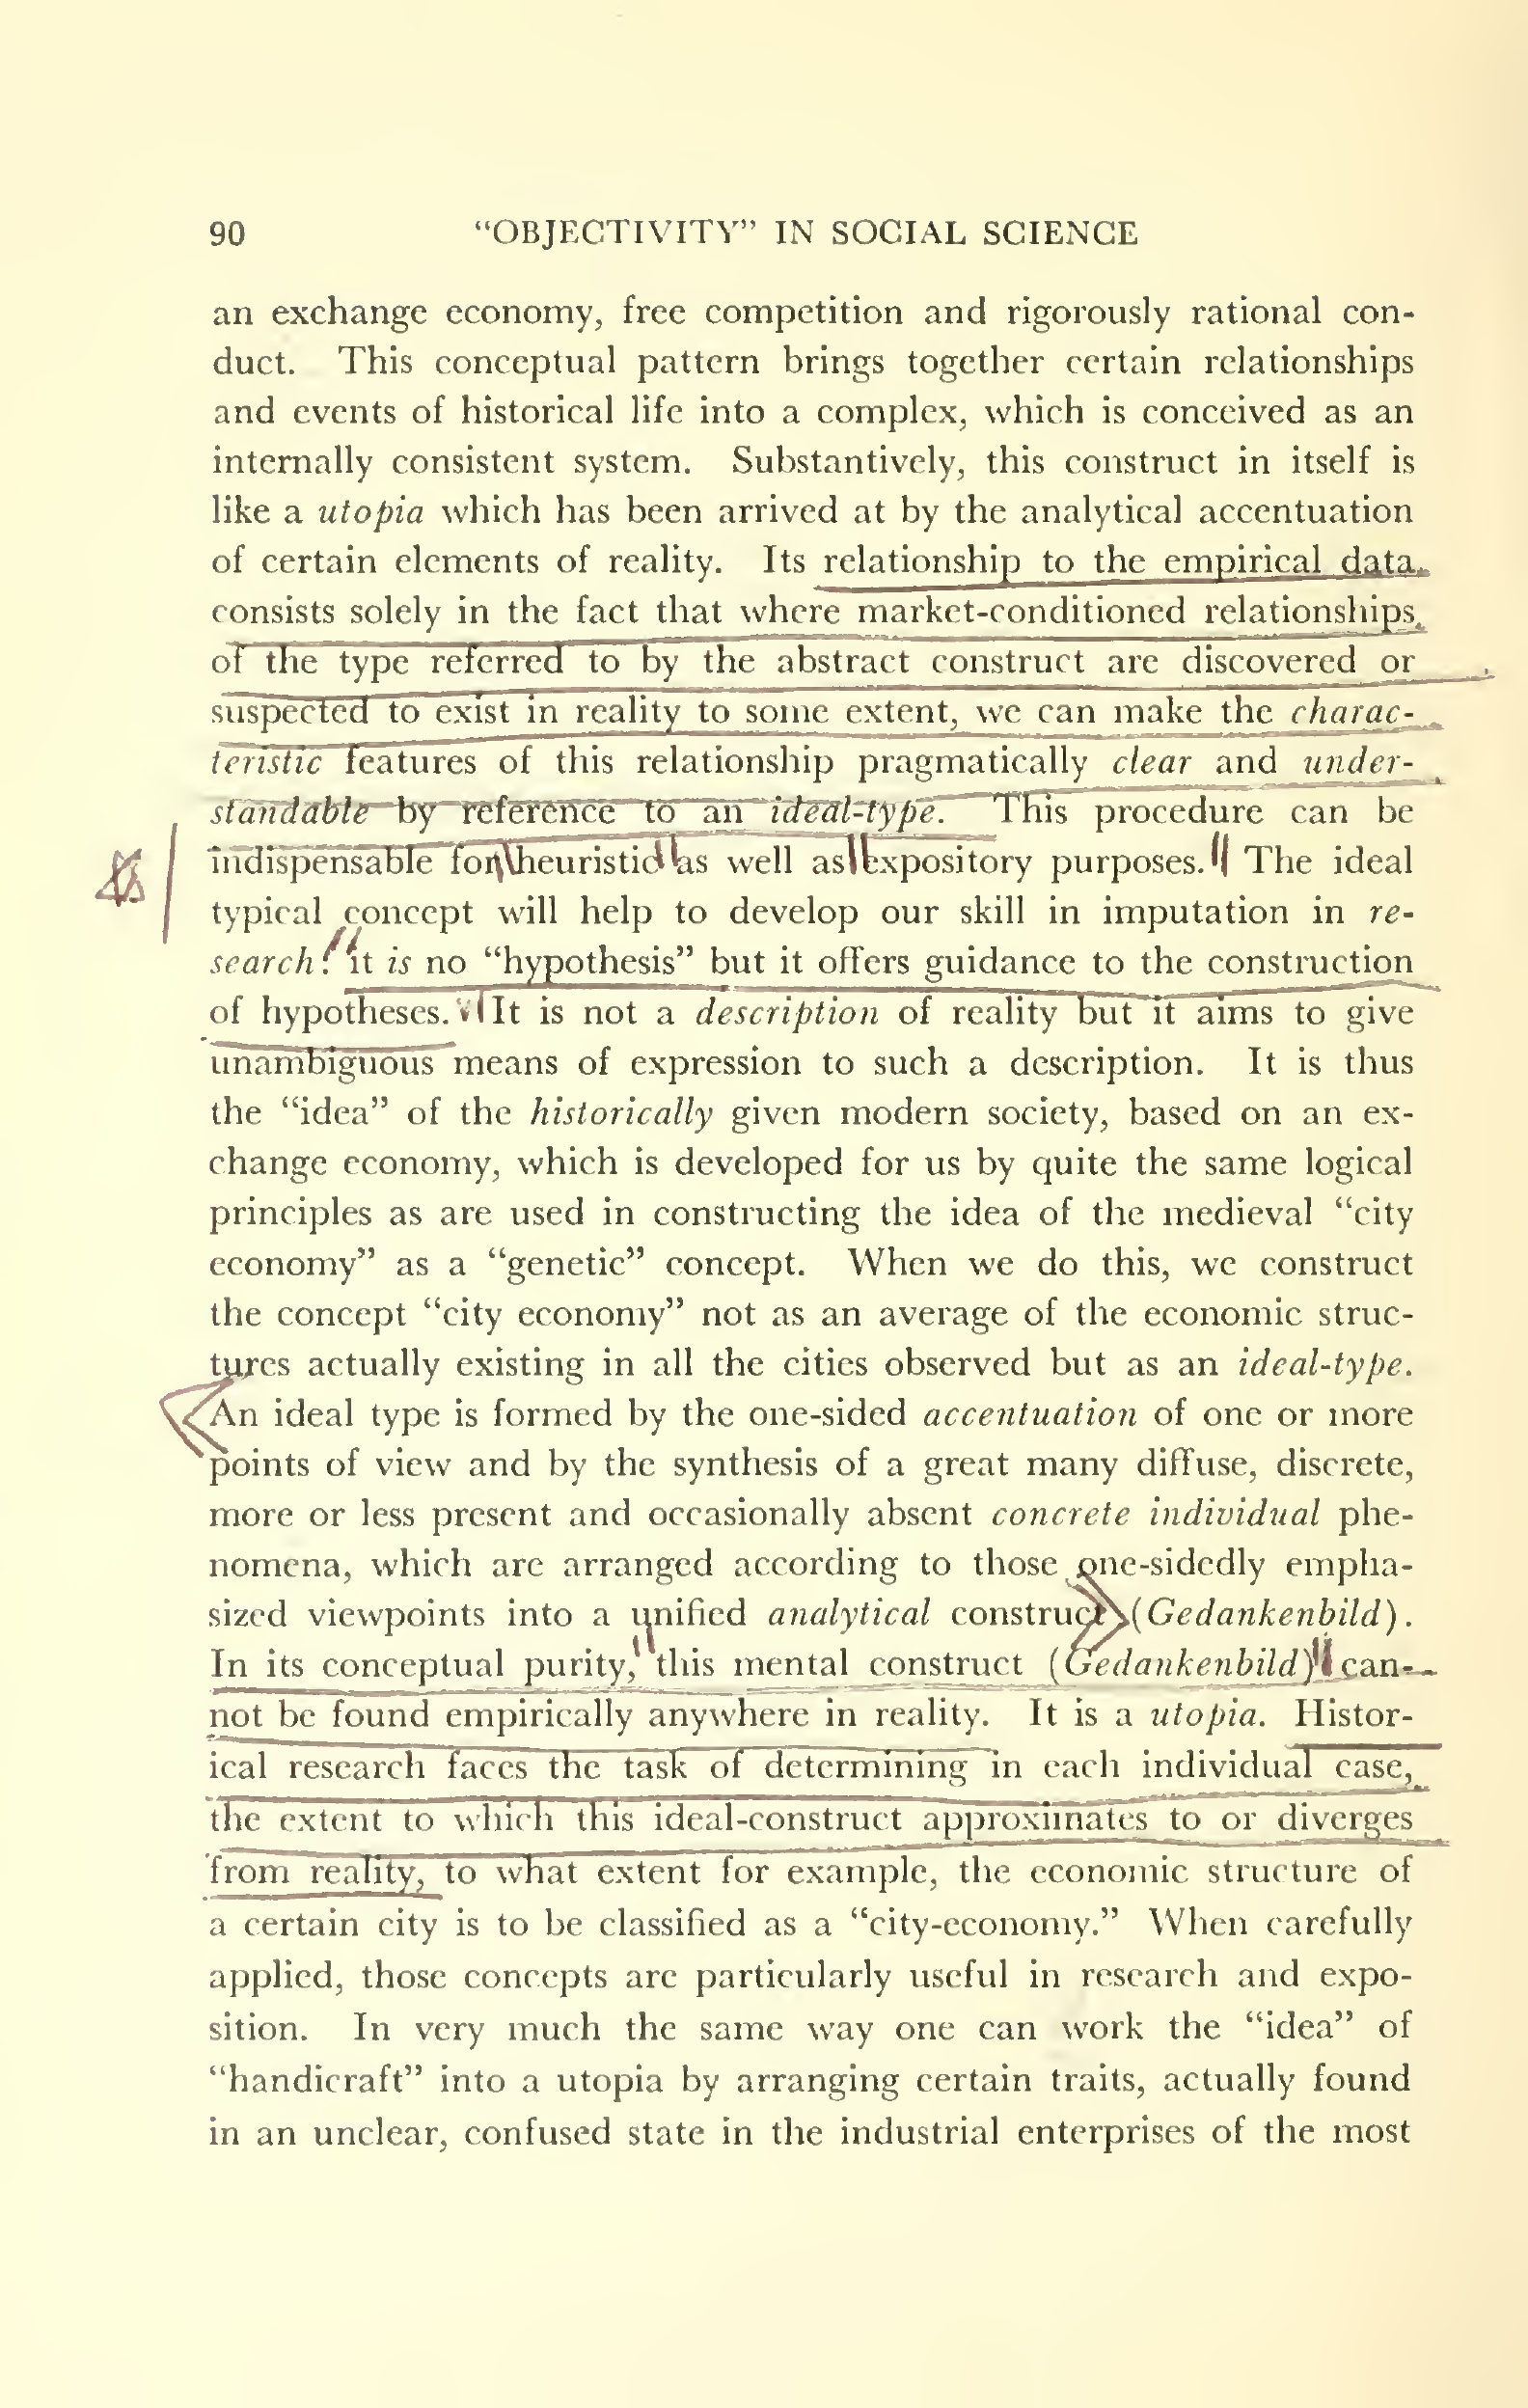 90 “OBJECTIVITY” IN SOCIAL SCIENCE
an exchange economy, free competition and rigorously rational con-
duct. This conceptual pattern brings together certain relationships
and events of historical life into a complex, which is conceived as an
internally consistent system. Substantively, this construct in itself is
like a utopia which has been arrived at by the analytical accentuation
of certain elements of reality. Its relationship to the empirical data
consists solely in the fact that where market-conditioned relationships
of the type referred to by the abstract construct are discovered or
suspected to exist in reality to some extent, we can make the charac-
teristic features of this relationship pragmatically clear and under-
standable by reference to an ideal-type. This procedure can be
indispensable for heuristic as well as expository purposes. The ideal
typical concept will help to develop our skill in imputation in re-
search: it is no “hypothesis” but it offers guidance to the construction
of hypotheses. It is not a description of reality but it aims to give
unambiguous means of expression to such a description. It is thus
the “idea” of the historically given modern society, based on an ex-
change economy, which is developed for us by quite the same logical
principles as are used in constructing the idea of the medieval “city
economy” as a “genetic” concept. When we do this, we construct
the concept “city economy” not as an average of the economic struc-
tures actually existing in all the cities observed but as an ideal-type.
An ideal type is formed by the one-sided accentuation of one or more
points of view and by the synthesis of a great many diffuse, discrete,
more or less present and occasionally absent concrete individual phe-
nomena, which are arranged according to those one-sidedly empha-
sized viewpoints into a unified analytical construct (Gedankenbild).
In its conceptual purity, this mental construct (Gedankenbild) can-
not be found empirically anywhere in reality. It is a utopia. Histor-
ical research faces the task of determining in each individual case,
the extent to which this ideal-construct approximates to or diverges
from reality, to what extent for example, the economic structure of
a certain city is to be classified as a “city-economy.” When carefully
applied, those concepts are particularly useful in research and expo-
sition. In very much the same way one can work the “idea” of
“handicraft” into a utopia by arranging certain traits, actually found
in an unclear, confused state in the industrial enterprises of the most